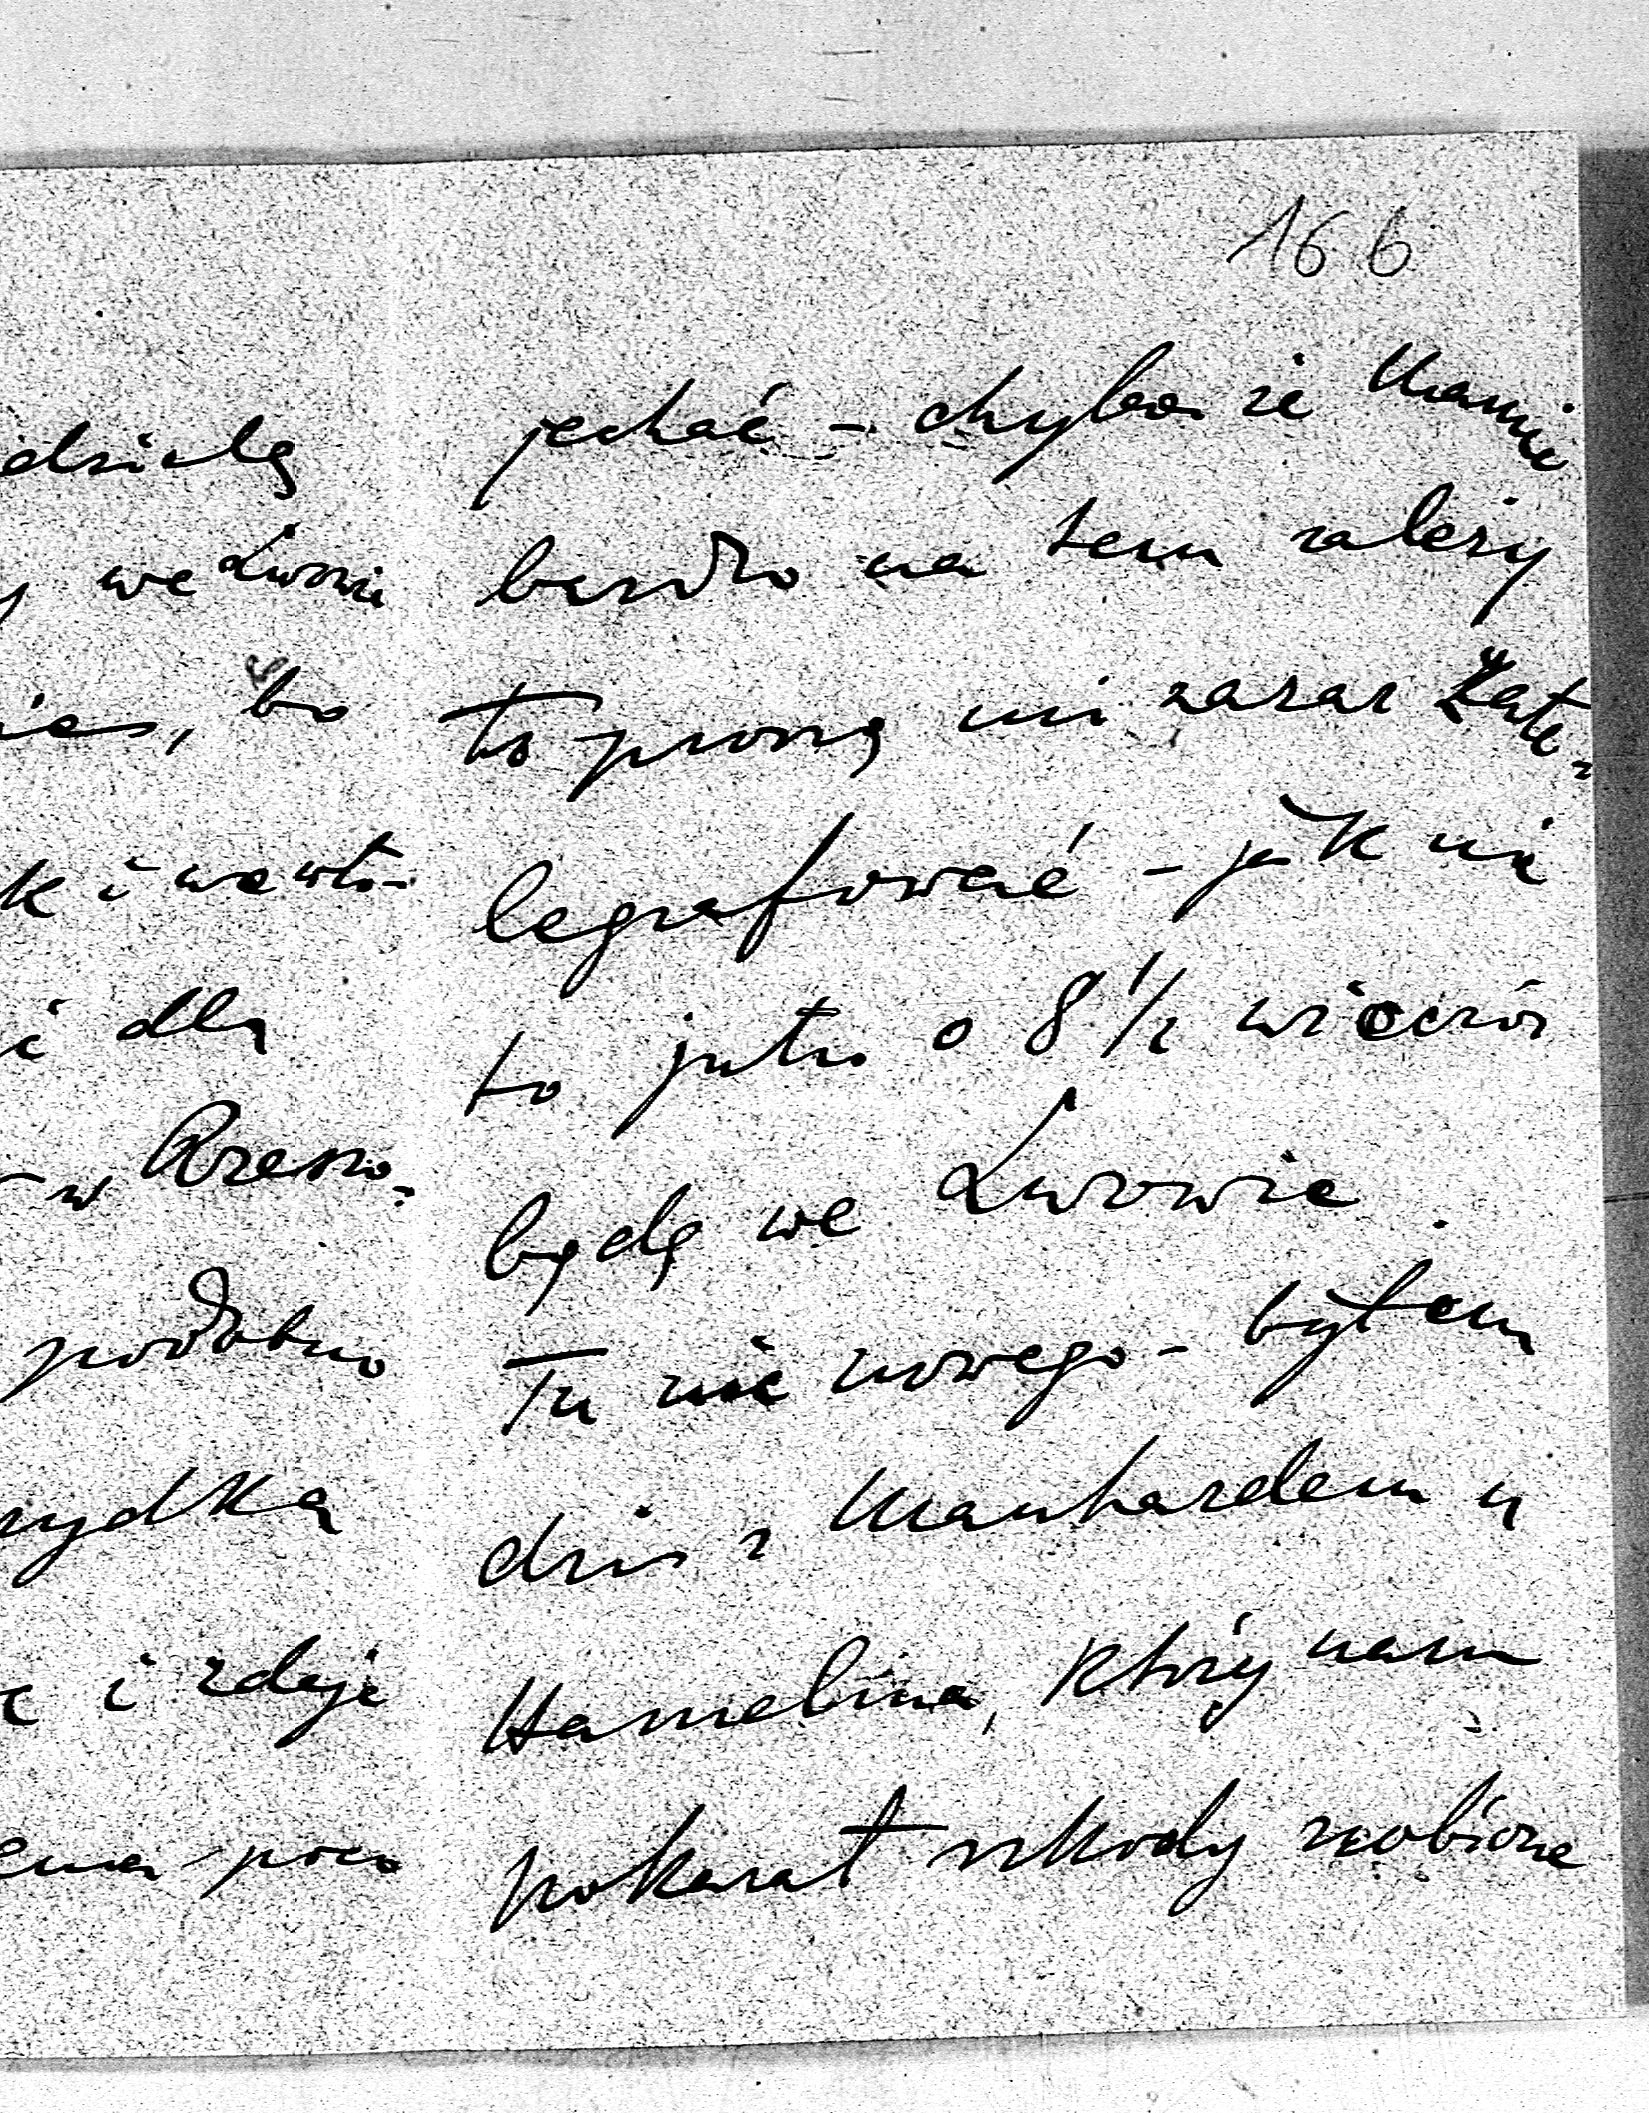 166
dzielę
we Lwowie
bo
k i we wto-
i dla
w Rzeszo-
podobno
rydką
i zdaje
jechać - chyba że Mamie
bardzo na tem zależy
to proszę mi zaraz zate-
legrafować - jak nie
to jutro o 8 1/2 wieczór
będę we Lwowie.
Tu nic nowego - byłem
dziś z Manhardem u
Hamelina, który nam
pokazał szkody zrobione